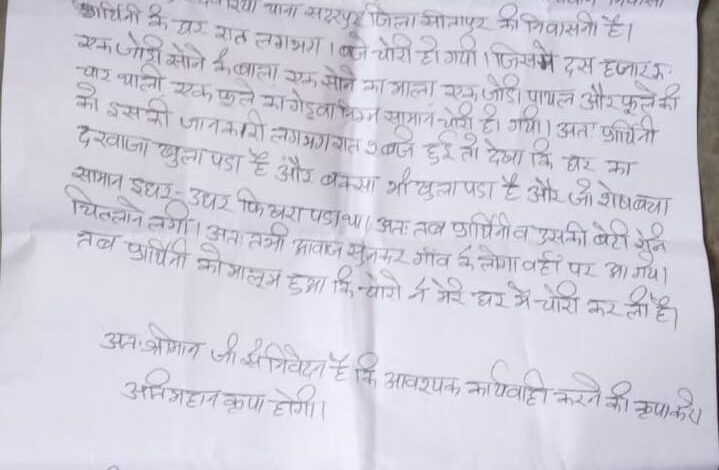 थाना सदरपुर जिला सीतापुर की निवासनी है।
प्रार्थिनी के घर रात लगभग 1 बजे चोरी हो गयी। जिसमें दस हजार रू.
एक जोड़ी सोने के बाला एक सोने का माला एक जोड़ी पायल और फूल की
चार थाली एक फूल का गेडुवा सामान चोरी हो गयी। अतः प्रार्थिनी
को इसकी जानकारी लगभग रात बजे हुई तो देखा कि घर का
दरवाजा खुला पडा है और बक्सा भी खुला पडा है और जो शेष बचा
सामान इधर-उधर फिखरा पडा था। अतः तब प्रार्थिनी व उसकी बेटी
चिल्लाने लगी। अतः तभी आवाज सुनकर गाँव के लोग वहाँ पर आ गये।
तब प्रार्थिनी को मालूम हुआ कि चोरो ने मेरे घर में चोरी कर ली है।
अतः श्रीमान जी से निवेदन है कि आवश्यक कार्यवाही करने की कृपा करे।
अति महान कृपा होगी।